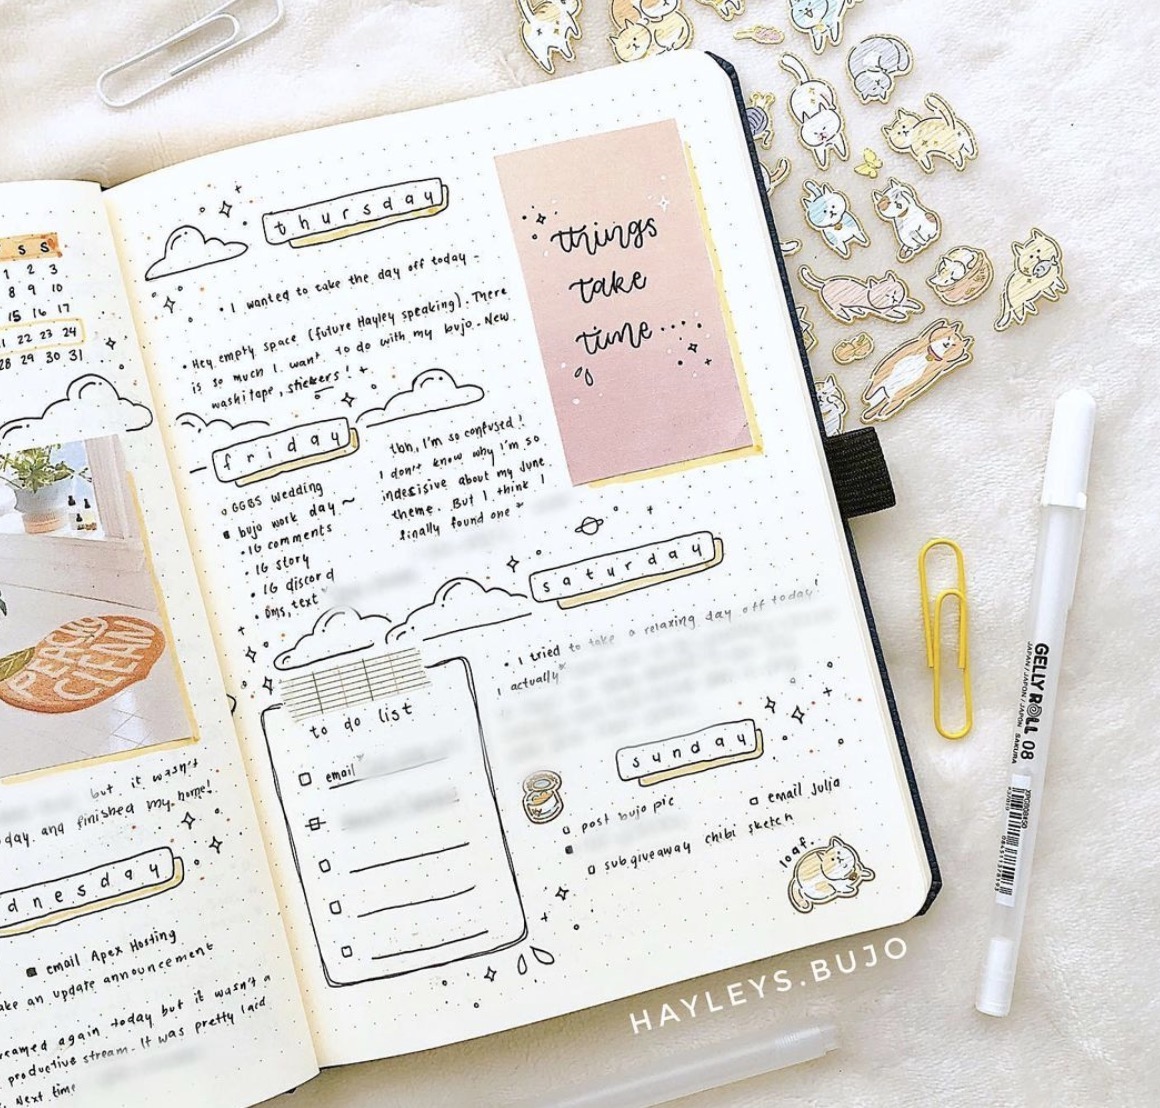 S S
1 2 3
8 9 10
15 16 17
22 23 24
28 29 30 31
PEACHY
CLEAN
but it wasn't
day. and finished my home!
dnesday
email Apex Hosting
ake an update announcement
reamed again today but it wasn't a
productive stream. It was pretty laid
Next time
thursday
• I wanted to take the day off today -
• Hey empty space (future Hayley speaking). There
is so much I want to do with my bujo. New
washi tape, stickers! +
friday
GGBS wedding
bujo work day ~
• IG comments
• IG story
• IG discord
• Dms, text
tbh, I'm so confused!
I don't know why I'm so
indesisive about my June
theme. But I think I
finally found one
things
take
time
saturday
• I tried to take a relaxing day off today!
I actually
to do list
email
sunday
post bujo pic
email Julia
sub giveaway chibi sketch
loaf.
HAYLEYS.BUJO
GELLY ROLL 08
JAPAN / JAPON / JAPÓN SAKURA